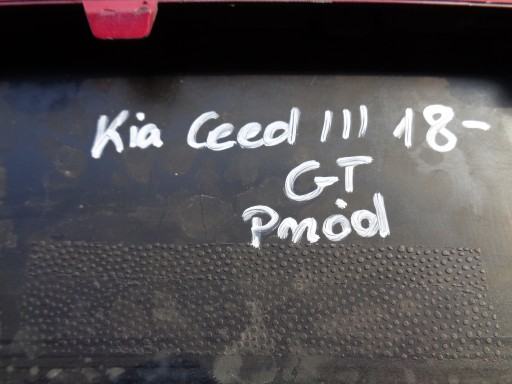 Kia Ceed III 18-
GT
Pmód